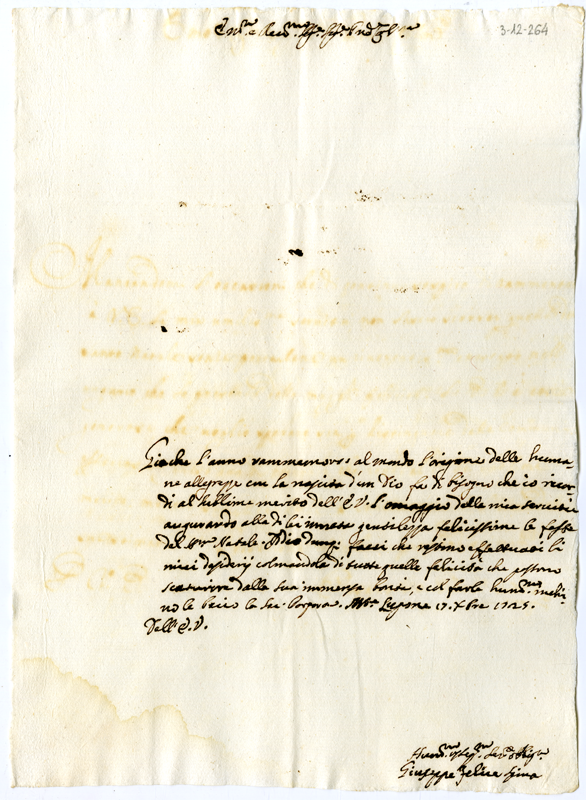 3-12-264
Giache l'anno rammemora al mondo l'origine delle huma-
ne allegrezze con la nascita d'un Dio fa di bisogno che io ricor-
di al sublime merito dell'E.V. l'omaggio della mia servitù
augurando alla di lei innata gentilezza felicissime le feste
del Natale. faci che restino effettuati li
miei desiderij colmandola di tutte quelle felicità che possono
scaturire dalla sua immensa bontà, e col farle hum.mo inchi-
no le bacio la Sac. Porpora. Lugone 17. Xbre 1725.
Dell'E.V.
Giuseppe Felice